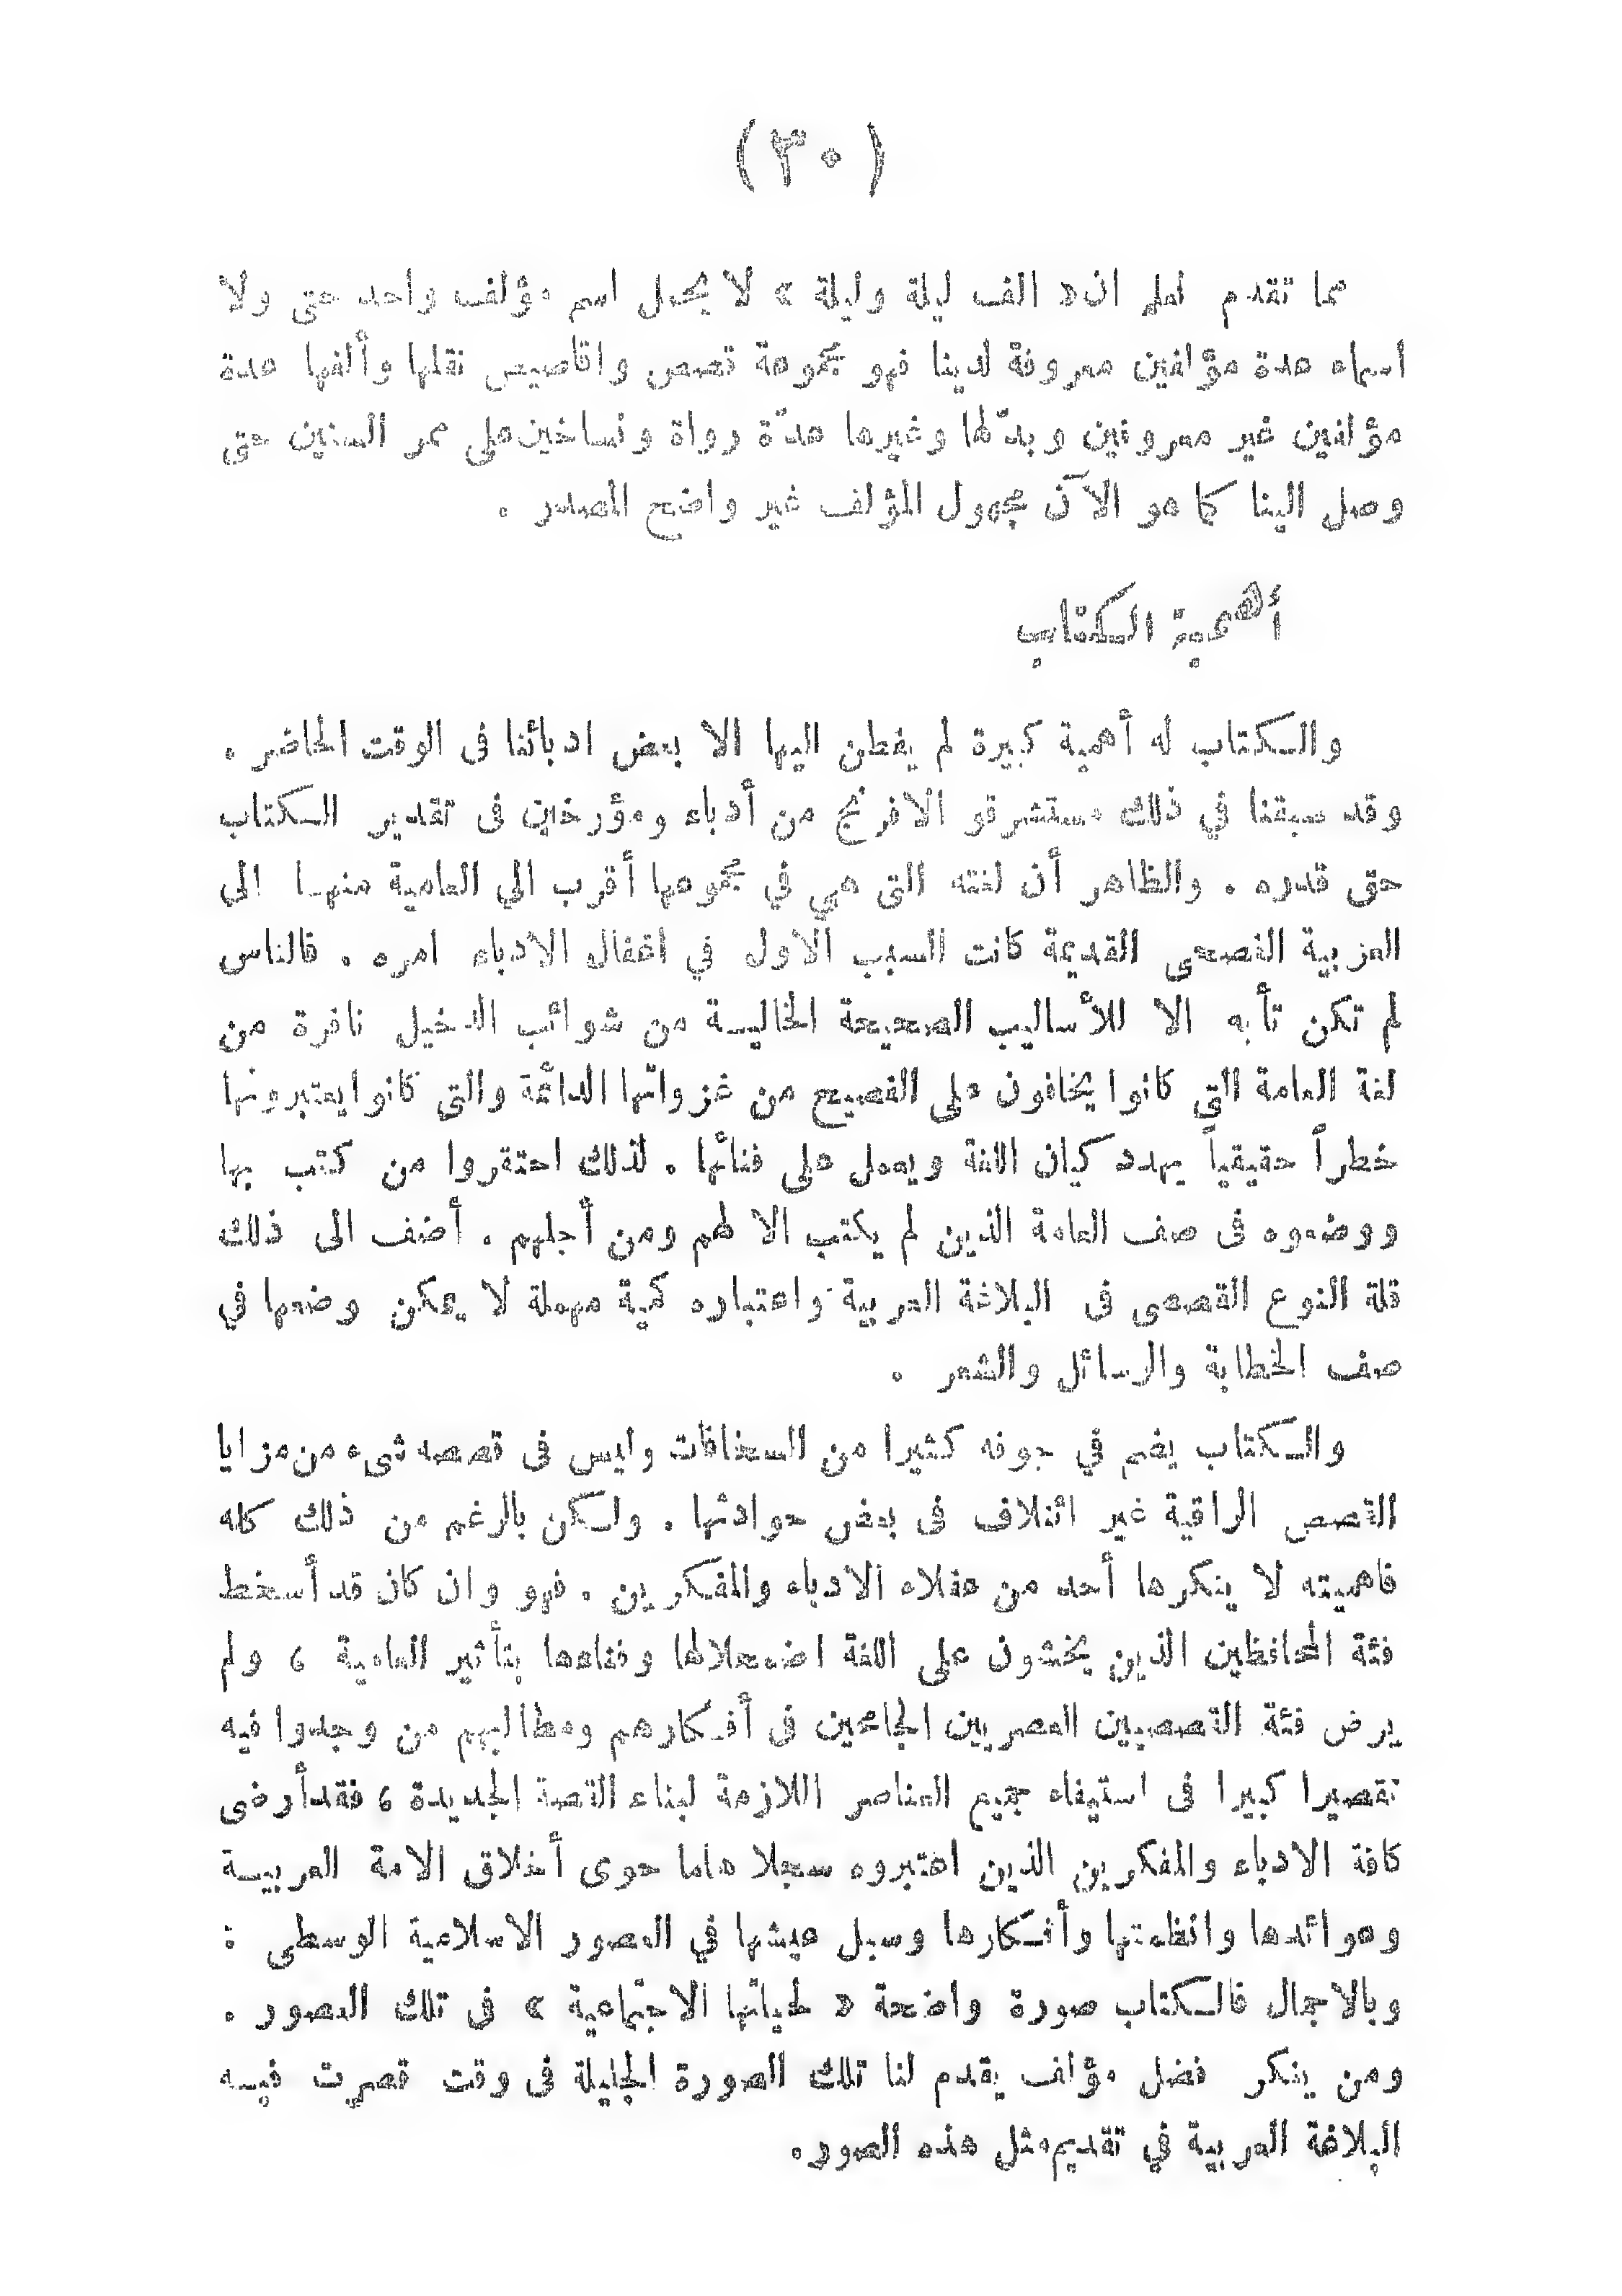 (٣٠)
مما تقدم نعلم ان « الف ليلة وليلة » لا يحمل اسم مؤلف واحد حتى ولا
اسماء عدة مؤلفين معروفة لدينا فهو مجموعة قصص واقاصيص نقلها وألفها عدة
مؤلفين غير معروفين وبدّلها وغيرها عدّة رواة ونساخين على ممر السنين حتى
وصل الينا كما هو الآن مجهول المؤلف غير واضح المصدر .
أهمية الكتاب
والكتاب له أهمية كبيرة لم يفطن اليها الا بعض ادبائنا فى الوقت الحاضر .
وقد سبقنا في ذلك مستشرقو الافرنج من أدباء ومؤرخين فى تقدير الكتاب
حق قدره . والظاهر أن لغته التى هي في مجموعها أقرب الي العامية منها الى
العربية الفصحى القديمة كانت السبب الاول في اغفال الادباء امره . فالناس
لم تكن تأبه الا للأساليب الصحيحة الخالية من شوائب الدخيل نافرة من
لغة العامة التي كانوا يخافون على الفصيح من غزواتها الدائمة والتى كانوا يعتبرونها
خطراً حقيقياً يهدد كيان اللغة ويعمل على فنائها . لذلك احتقروا من كتب بها
ووضعوه فى صف العامة الذين لم يكتب الا لهم ومن أجلهم . أضف الى ذلك
قلة النوع القصصى فى البلاغة العربية واعتباره كمية مهملة لا يمكن وضعها في
صف الخطابة والرسائل والشعر .
والكتاب يضم في جوفه كثيرا من السخافات وليس فى قصصه شىء من مزايا
القصص الراقية غير ائتلاف فى بعض حوادثها . ولكن بالرغم من ذلك كله
فاهميته لا ينكرها أحد من عقلاء الادباء والمفكرين . فهو وان كان قد أسخط
فئة المحافظين الذين يخشون على اللغة اضمحلالها وفناءها بتأثير العامية ، ولم
يرض فئة القصصيين العصريين الجامحين فى أفكارهم ومطالبهم من وجدوا فيه
تقصيرا كبيرا فى استيفاء جميع العناصر اللازمة لبناء القصة الجديدة ، فقد أرضى
كافة الادباء والمفكرين الذين اعتبروه سجلا هاما حوى أخلاق الامة العربية
وعوائدها وانظمتها وأفكارها وسبل عيشها في العصور الاسلامية الوسطى :
وبالاجمال فالكتاب صورة واضحة « لحياتها الاجتماعية » فى تلك العصور .
ومن ينكر فضل مؤلف يقدم لنا تلك الصورة الجليلة فى وقت قصرت فيه
البلاغة العربية في تقديم مثل هذه الصور.